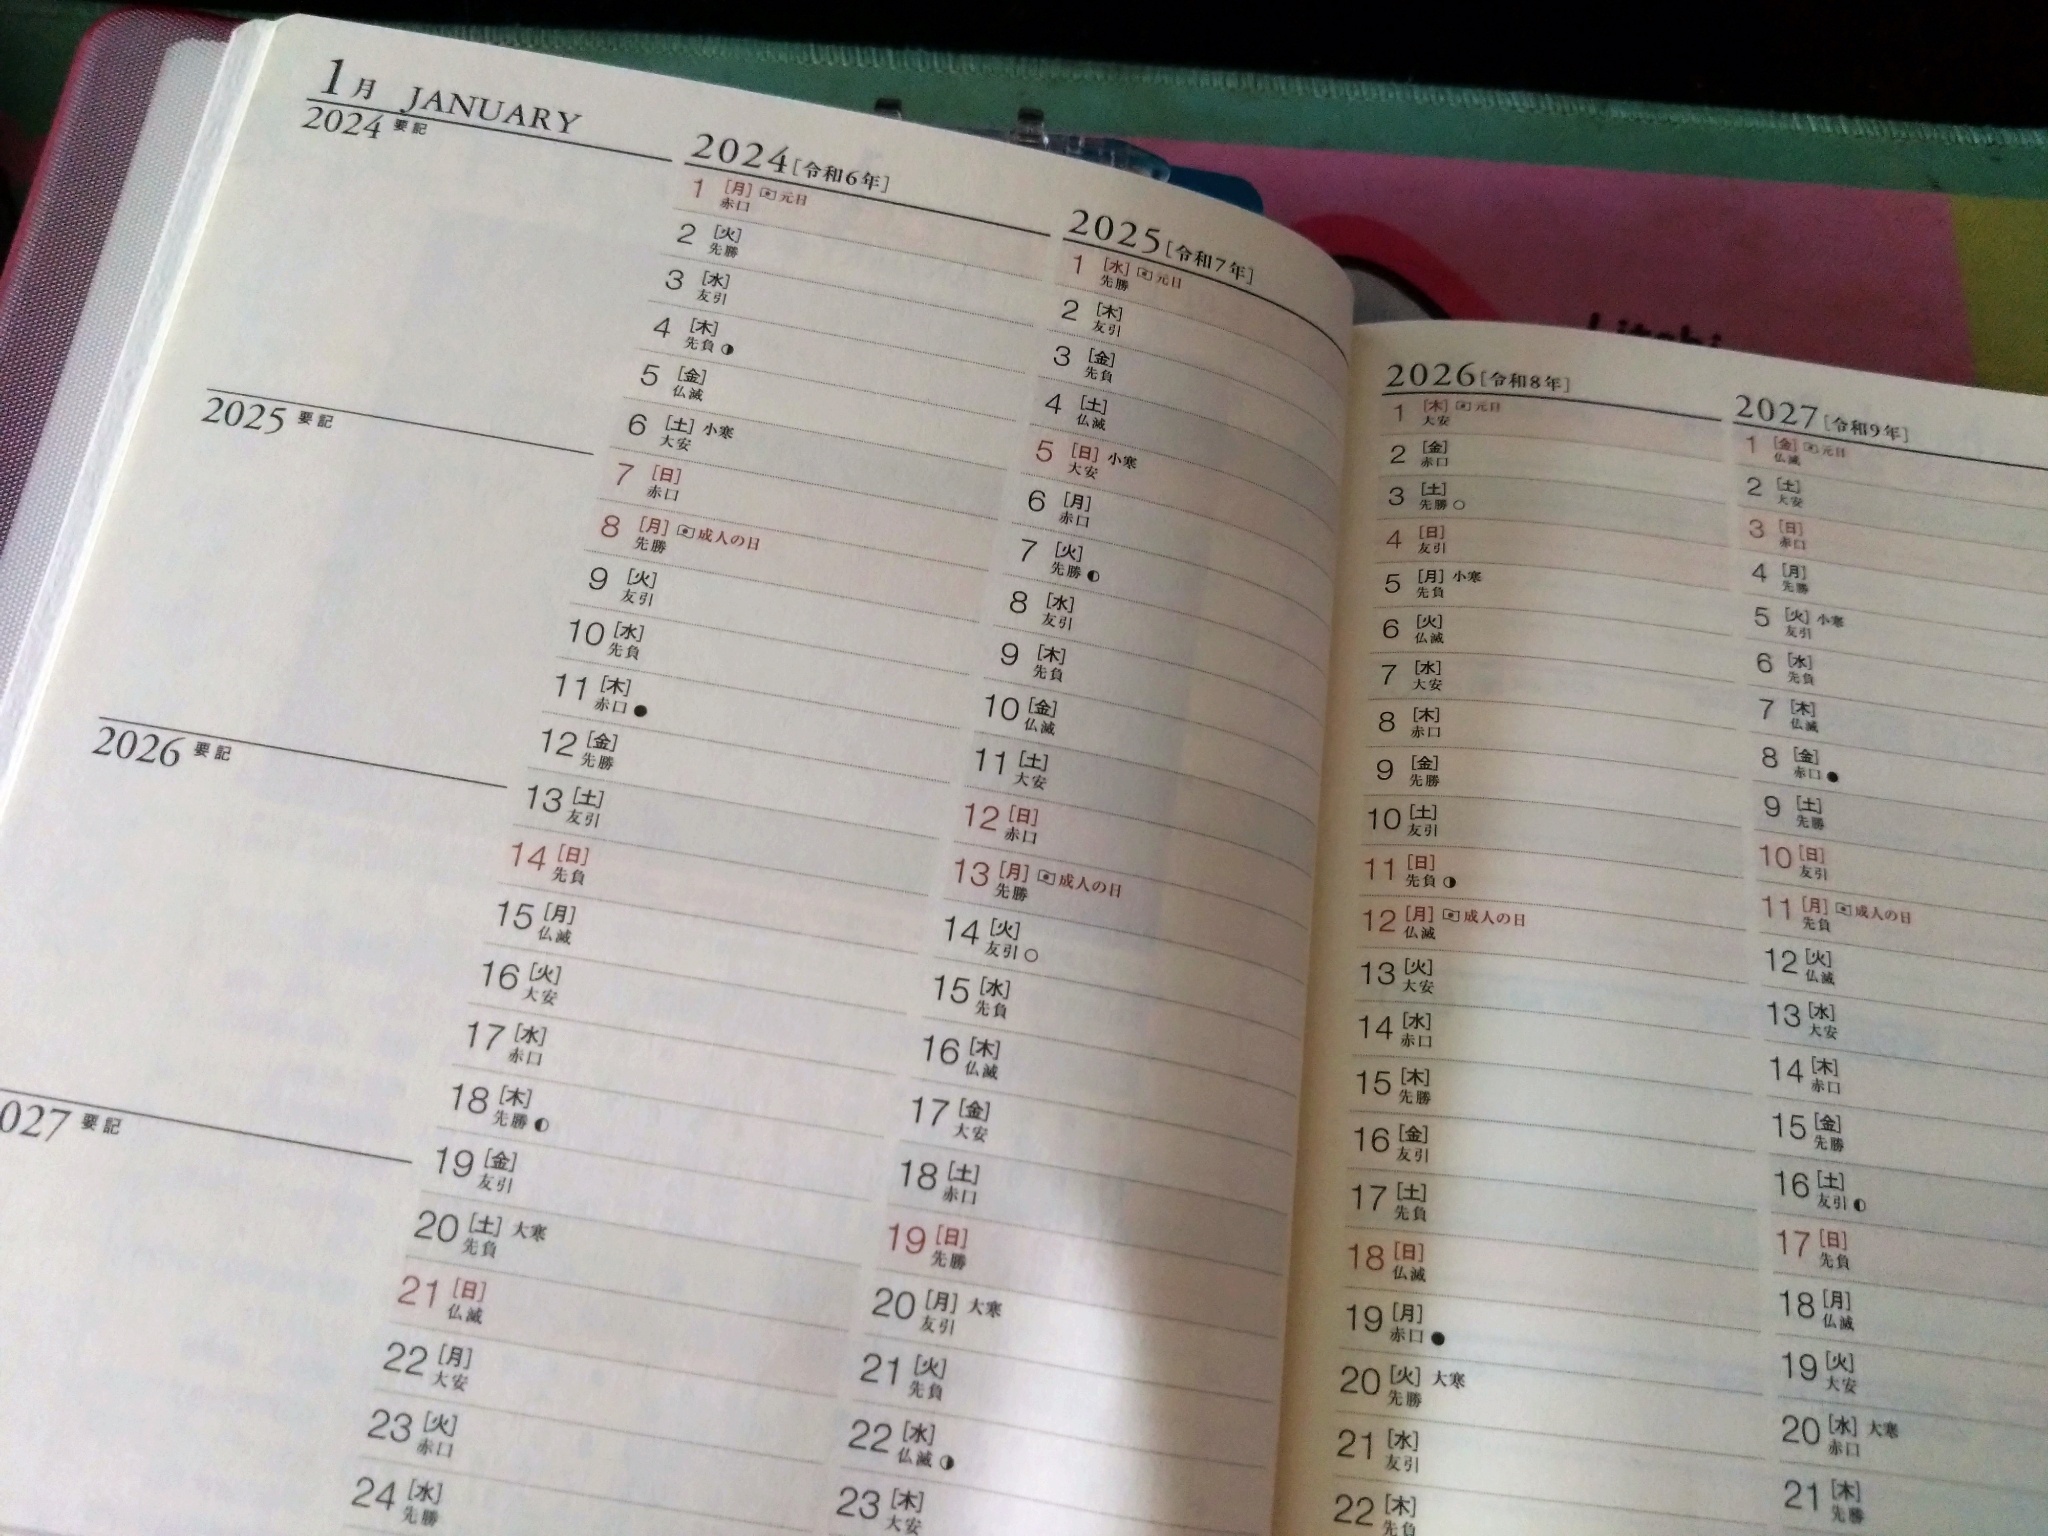 1月 JANUARY
2024 要記
2025 要記
2026 要記
027 要記
2024[令和6年]
1 [月] 元日
赤口
2 [火]
先勝
3 [水]
友引
4 [木]
先負
5 [金]
仏滅
6 [土] 小寒
大安
7 [日]
赤口
8 [月] 成人の日
先勝
9 [火]
友引
10 [水]
先負
11 [木]
赤口
12 [金]
先勝
13 [土]
友引
14 [日]
先負
15 [月]
仏滅
16 [火]
大安
17 [水]
赤口
18 [木]
先勝
19 [金]
友引
20 [土] 大寒
先負
21 [日]
仏滅
22 [月]
大安
23 [火]
赤口
24 [水]
先勝
2025[令和7年]
1 [水] 元日
先勝
2 [木]
友引
3 [金]
先負
4 [土]
仏滅
5 [日] 小寒
大安
6 [月]
赤口
7 [火]
先勝
8 [水]
友引
9 [木]
先負
10 [金]
仏滅
11 [土]
大安
12 [日]
赤口
13 [月] 成人の日
先勝
14 [火]
友引
15 [水]
先負
16 [木]
仏滅
17 [金]
大安
18 [土]
赤口
19 [日]
先勝
20 [月] 大寒
友引
21 [火]
先負
22 [水]
仏滅
23 [木]
大安
2026[令和8年]
1 [木] 元日
大安
2 [金]
赤口
3 [土]
先勝
4 [日]
友引
5 [月] 小寒
先負
6 [火]
仏滅
7 [水]
大安
8 [木]
赤口
9 [金]
先勝
10 [土]
友引
11 [日]
先負
12 [月] 成人の日
仏滅
13 [火]
大安
14 [水]
赤口
15 [木]
先勝
16 [金]
友引
17 [土]
先負
18 [日]
仏滅
19 [月]
赤口
20 [火] 大寒
先勝
21 [水]
友引
22 [木]
先負
2027[令和9年]
1 [金] 元日
仏滅
2 [土]
大安
3 [日]
赤口
4 [月]
先勝
5 [火] 小寒
友引
6 [水]
先負
7 [木]
仏滅
8 [金]
赤口
9 [土]
先勝
10 [日]
友引
11 [月] 成人の日
先負
12 [火]
仏滅
13 [水]
大安
14 [木]
赤口
15 [金]
先勝
16 [土]
友引
17 [日]
先負
18 [月]
仏滅
19 [火]
大安
20 [水] 大寒
赤口
21 [木]
先勝